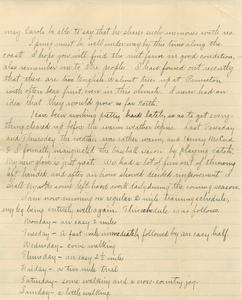 may Carols be able to say that he shares such memories with me.
I guess must be well under way by this time along the
coast. I hope you will find the nut farm in good condition,
also remember me to the people. I have found out recently
that there are two English Walnut trees up at Princeton
with often bear fruit even in this climate. I never had an
idea that they would grow so far north.
I have been working pretty hard lately, so as to get every-
thing cleaned up before the warm weather before. Last Tuesday
and Thursday the weather was rather warm, and Henry Poland
& I formally inaugurated the baseball season by playing catch.
My new glove is just great. We had a lot of fun out of throwing
left handed, and after an hour showed decided improvement. I
shall try to do some left hand work daily during the coming season.
I am now running on regular 2 mile training schedules,
my leg being entirely well again. This schedule is as follows.
Monday - an easy 2 miles
Tuesday - A fast mile immediately followed by an easy half.
Wednesday - some walking
Thursday - an easy 2 1/2 miles
Friday - a two mile trial
Saturday - some walking and a cross-country jog.
Sunday - a little walking